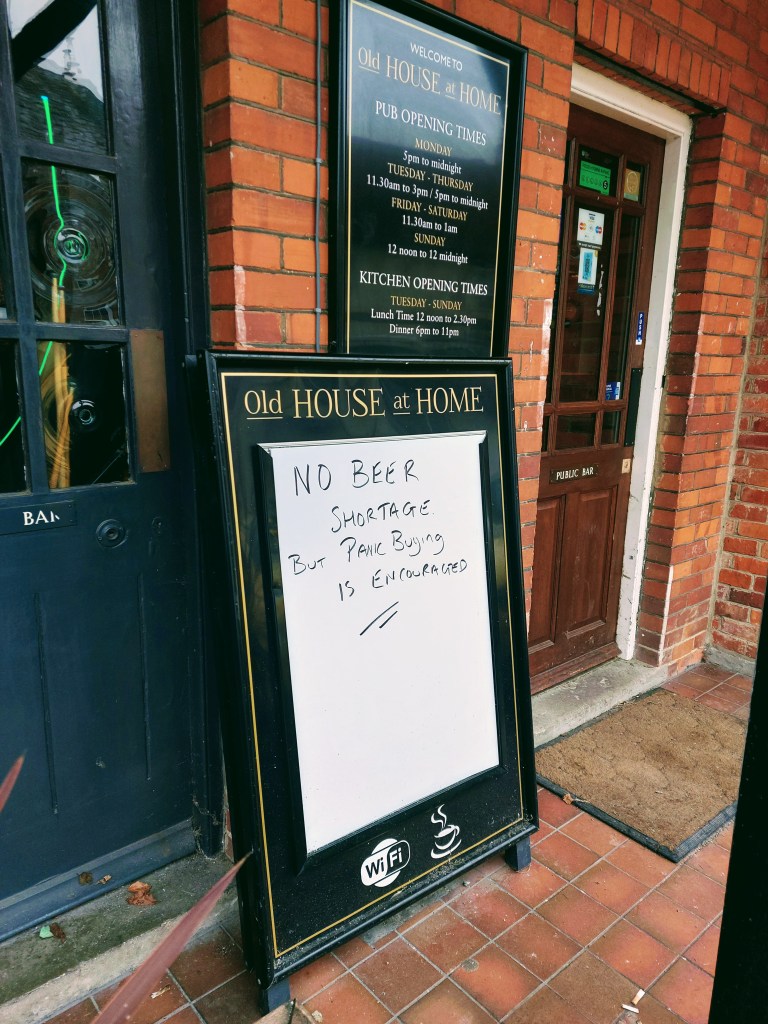 WELCOME TO
Old HOUSE at HOME
PUB OPENING TIMES
MONDAY
5pm to midnight
TUESDAY - THURSDAY
11.30am to 3pm / 5pm to midnight
FRIDAY - SATURDAY
11.30am to 1am
SUNDAY
12 noon to 12 midnight
KITCHEN OPENING TIMES
TUESDAY - SUNDAY
Lunch Time 12 noon to 2.30pm
Dinner 6pm to 11pm
Old HOUSE at HOME
NO BEER
SHORTAGE.
BUT PANIC BUYING
IS ENCOURAGED
WiFi
BAR
PUBLIC BAR
PUSH